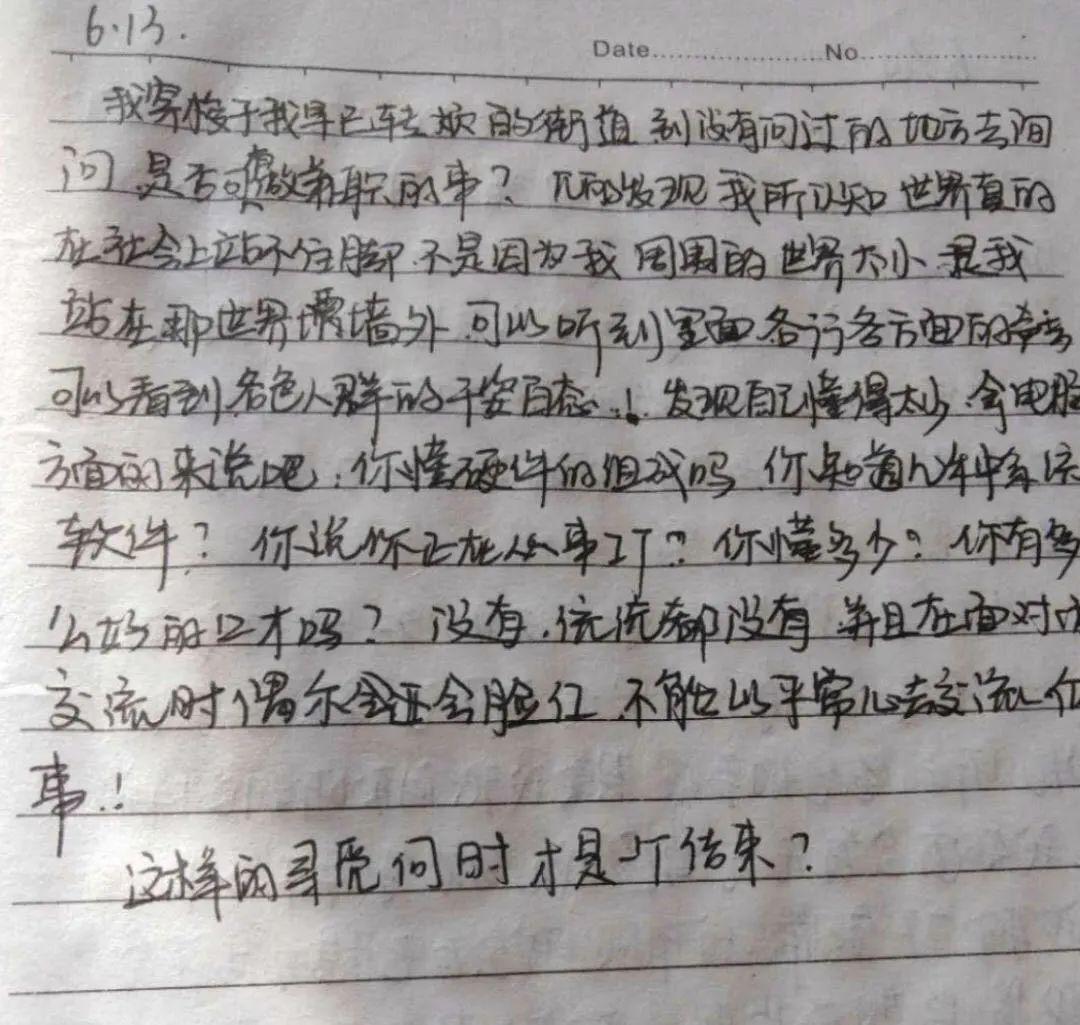 6.13.
Date No
我穿梭于我早已转了烦的街道 到没有问过的地方去问
问 是否可做兼职的事? 发现 我所认知 世界真的
在社会上站不住脚 不是因为我 周围的世界太小 是我
站在那世界墙外 可以听到里面各行各方面的
可以看到各色人群的千姿百态..! 发现自己懂得太少 拿电脑
方面的来说吧. 你懂硬件的组成吗 你知道几种
软件? 你说你正在从事IT? 你懂多少? 你有多
么好的口才吗? 没有. 统统都没有 并且在面对
交流时偶尔会还会脸红 不能以平常心去交流
事..!
这样的寻觅何时才是个结束?